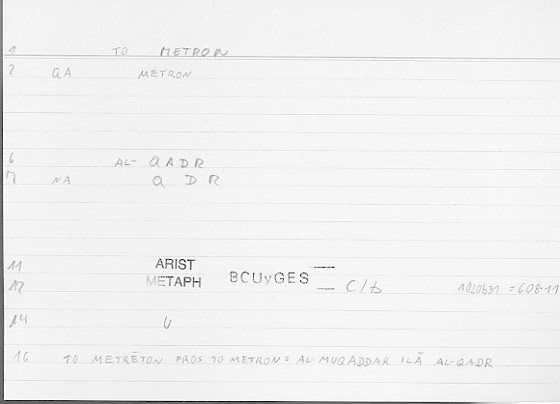 1 TO METRON
2 QA METRON
6 AL- QADR
7 NA Q D R
11 ARIST
12 METAPH BCUyGES C/b 1020b31 = 608.11
14 U
16 TO METRĒTON PROS TO METRON = AL-MUQADDAR ILĀ AL-QADR